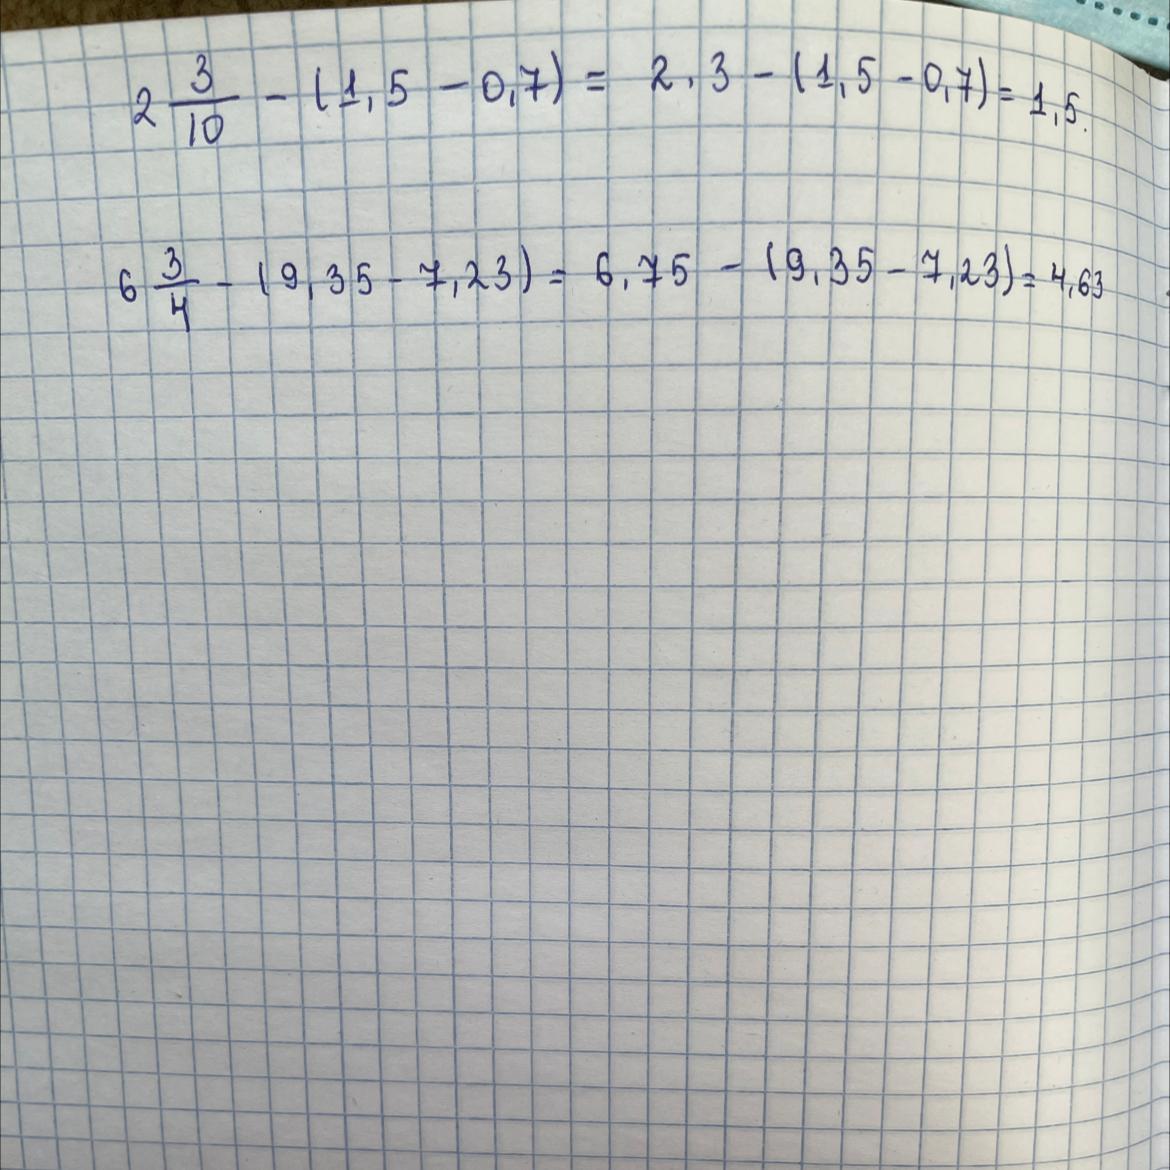 2 3/10 - (1,5 - 0,7) = 2,3 - (1,5 - 0,7) = 1,5.
6 3/4 - (9,35 - 7,23) = 6,75 - (9,35 - 7,23) = 4,63